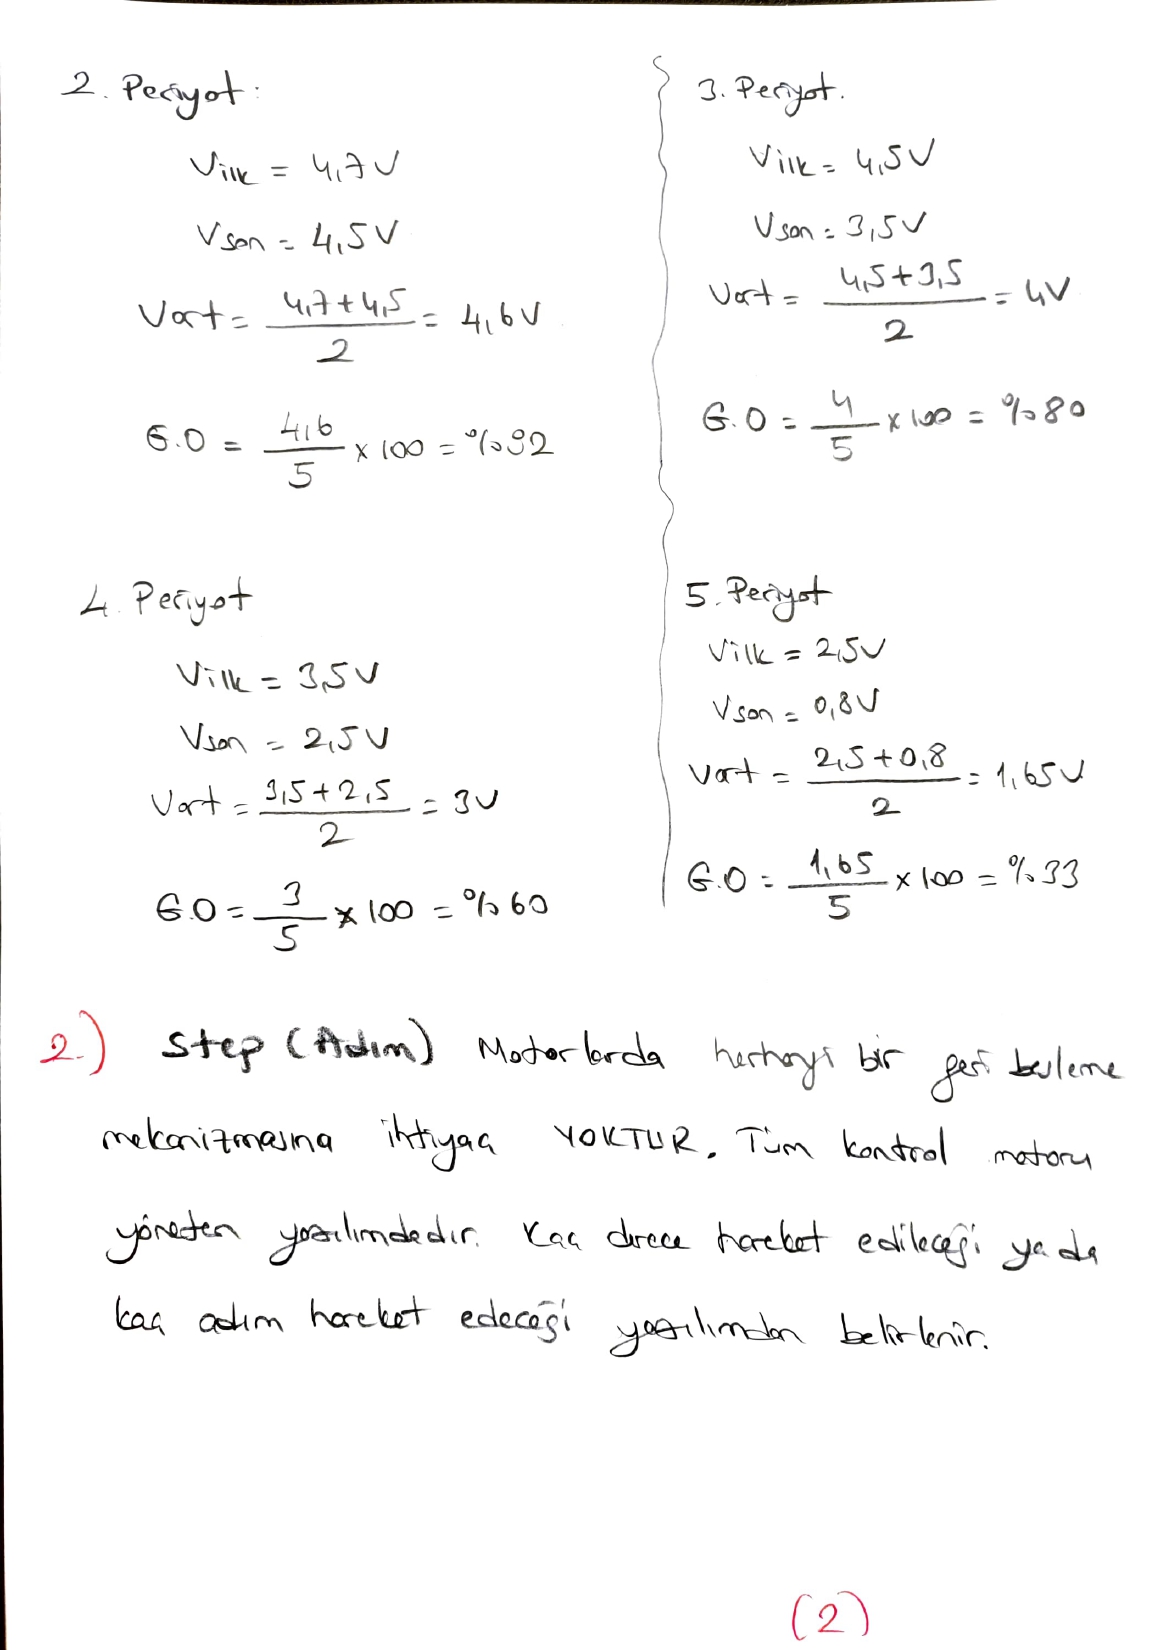 2. Periyot:
Vilk = 4,7V
Vson = 4,5V
Vort = 4,7+4,5 / 2 = 4,6V
G.O = 4,6 / 5 x 100 = %92
3. Periyot.
Vilk = 4,5V
Vson = 3,5V
Vort = 4,5+3,5 / 2 = 4V
G.O = 4 / 5 x 100 = %80
4. Periyot
Vilk = 3,5V
Vson = 2,5V
Vort = 3,5+2,5 / 2 = 3V
G.O = 3 / 5 x 100 = %60
5. Periyot
Vilk = 2,5V
Vson = 0,8V
Vort = 2,5+0,8 / 2 = 1,65V
G.O = 1,65 / 5 x 100 = %33
2.) Step (Adım) Motorlarda herhayi bir geri besleme
mekanizmasına ihtiyaç YOKTUR. Tüm kontrol motoru
yöneten yazılımdadır. Kaç derece hareket edileceği ya da
kaç adım hareket edeceği yazılımdan belirlenir.
(2)